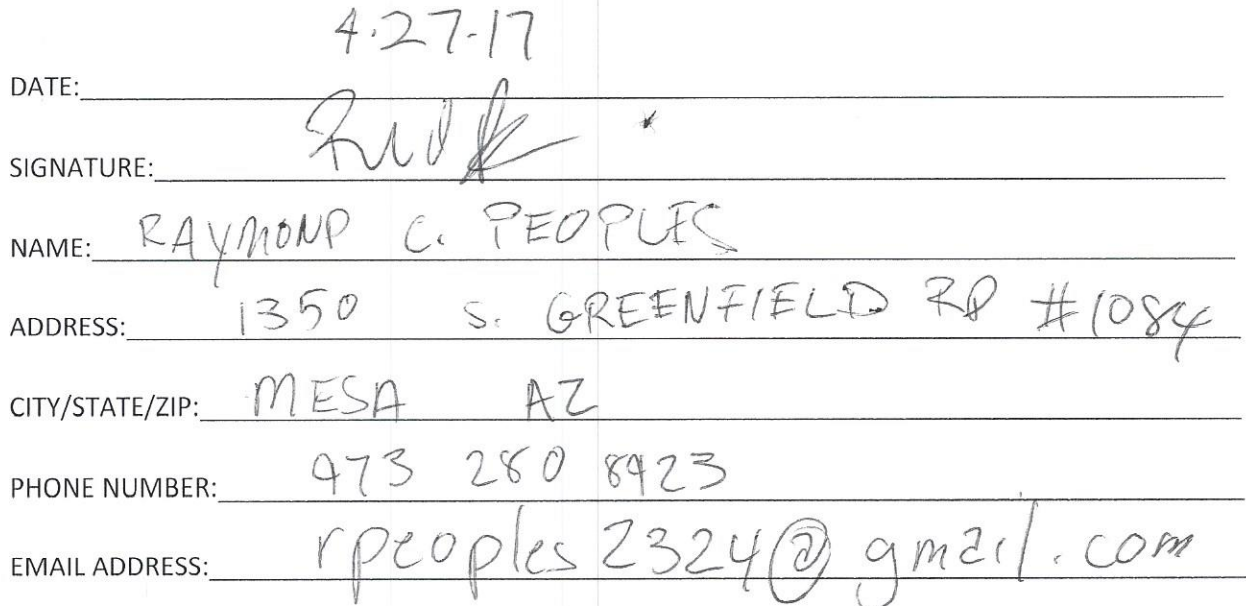 4.27-17
DATE:
SIGNATURE:
NAME: RAYMOND C. PEOPLES
ADDRESS: 1350 S. GREENFIELD RD #1084
CITY/STATE/ZIP: MESA AZ
PHONE NUMBER: 973 280 8923
EMAIL ADDRESS: rpeoples2324@gmail.com